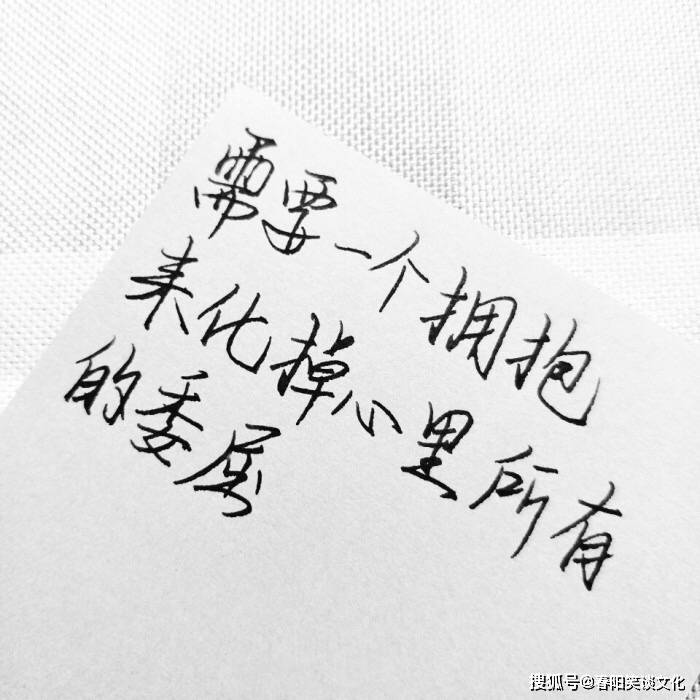 需要一个拥抱
来化掉心里所有
的委屈
搜狐号@春阳笑谈文化